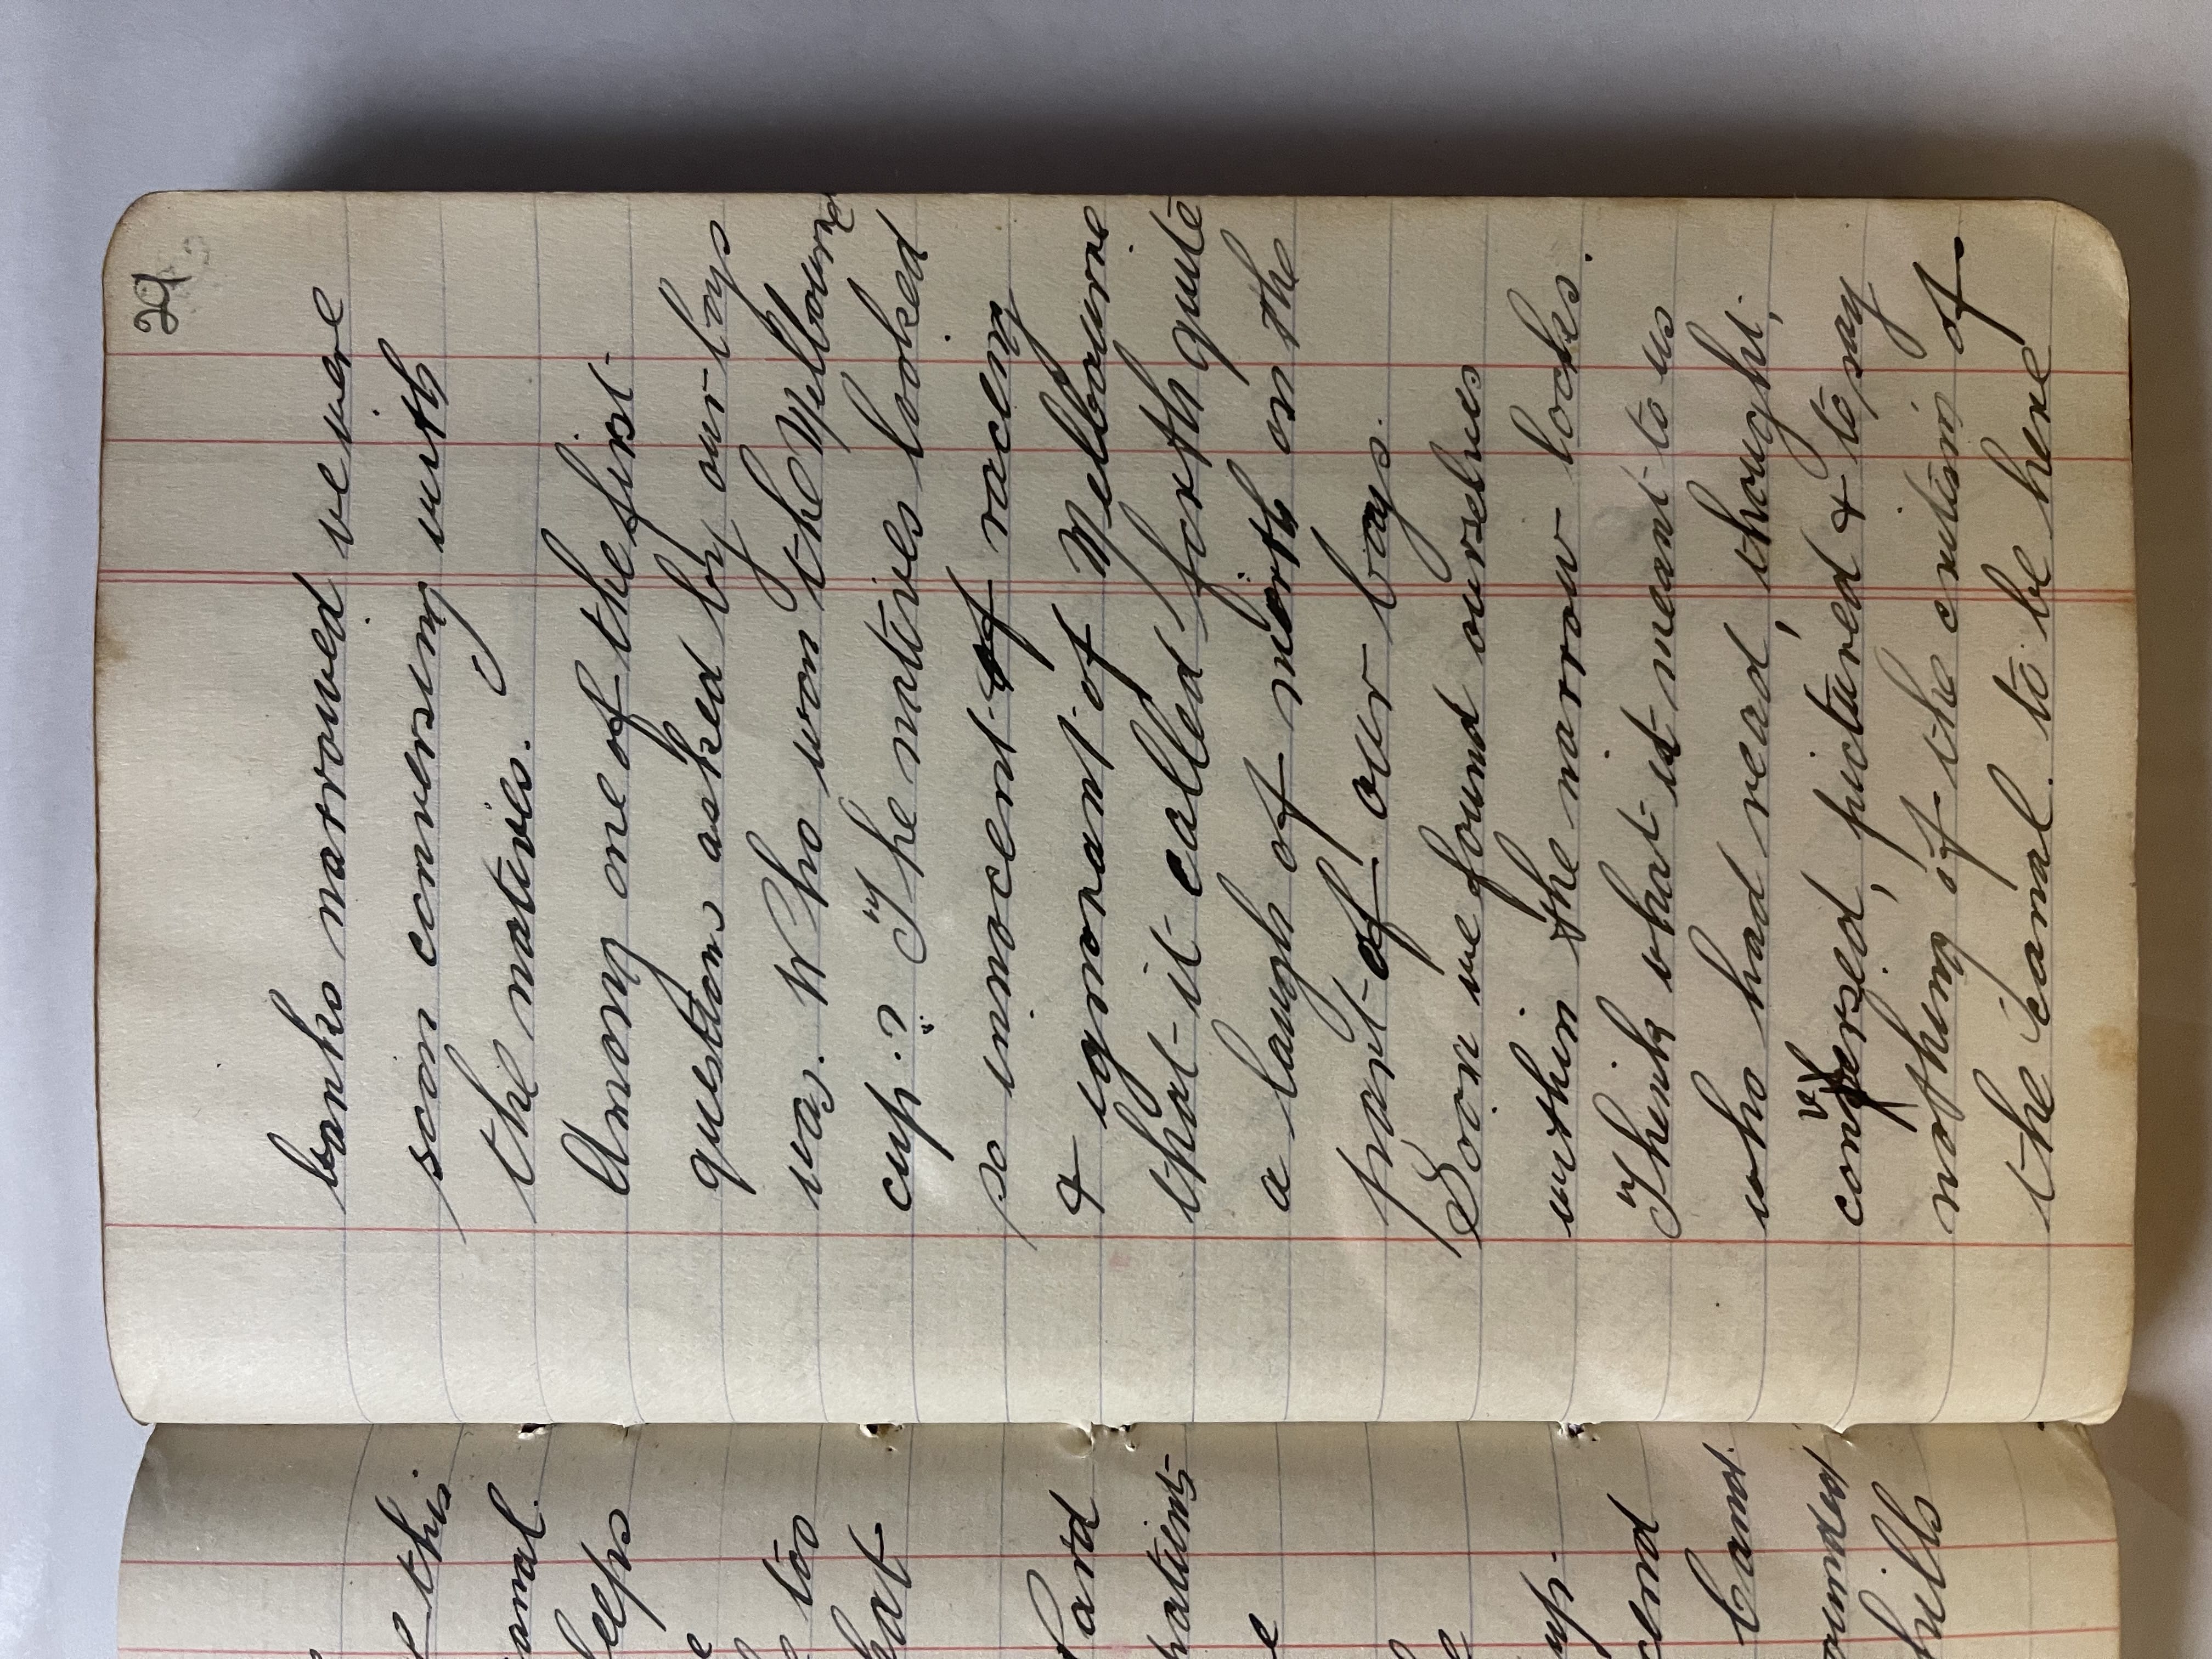 29
banks narrowed we were
soon conversing with
the natives.
Among one of the first
questions asked by our boys
was. Who won the Melbourne
cup.? The natives looked
so innocent of racing
& ignorant of Melbourne
that it called forth quite
a laugh of mirth on the
part of our boys.
Soon we found ourselves
within the narrow locks.
Think what it meant to us
who had read, thought,
conversed, pictured & to say
nothing of the critism of
the canal. to be here
this
hat
too
hills
up.